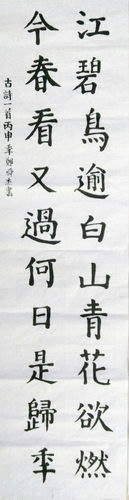 江碧鳥逾白山青花欲燃
今春看又過何日是歸秊
古詩一首丙申秊